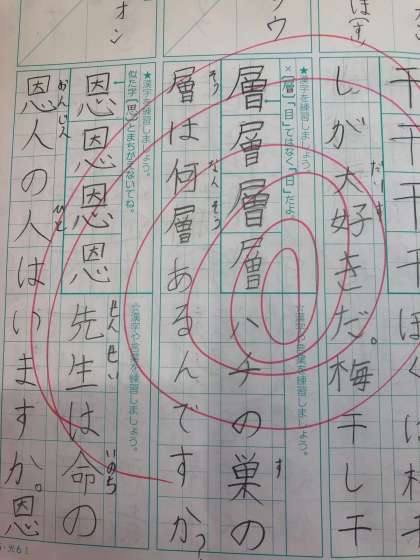 ほ(す
干干干干
だい す
しが大好きだ。梅干し干
ウ
★漢字を練習しましょう。
☆漢字や言葉を練習しましょう。
「目」ではなく「日」だよ
す
層層層層ハチの巣の
そう なん そう
層は何層あるんですか。
オン
★漢字を練習しましょう。
☆漢字や言葉を練習しましょう。
似た字(思)とまちがえないでね。
せんせい いのち
恩恩恩恩先生は命の
おんじん ひと
恩人の人はいますか。恩